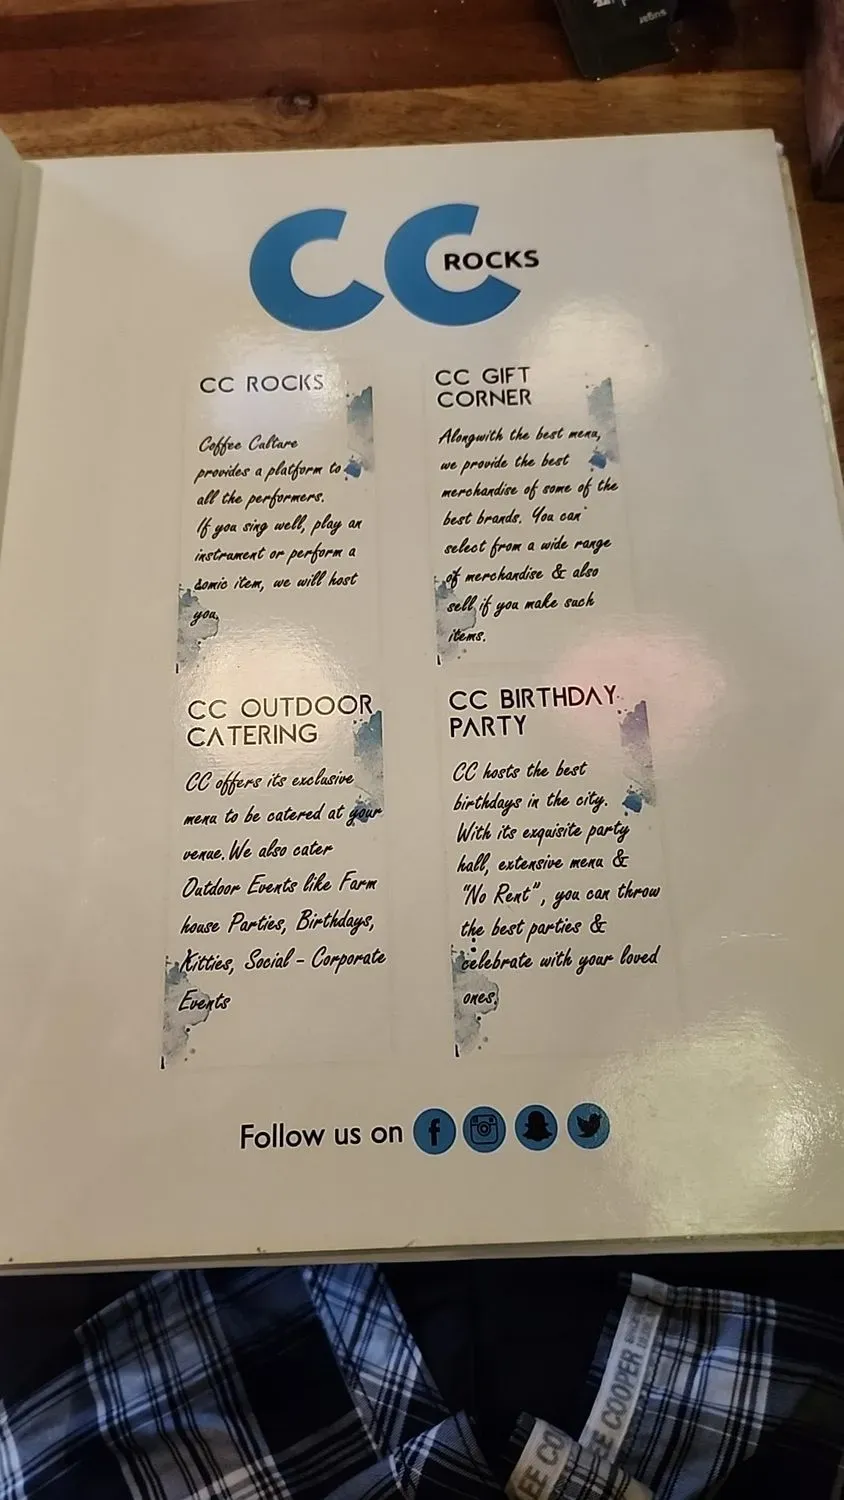 sugar
CC ROCKS
CC ROCKS
Coffee Culture
provides a platform to
all the performers.
If you sing well, play an
instrument or perform a
comic item, we will host
you.
CC GIFT
CORNER
Alongwith the best menu,
we provide the best
merchandise of some of the
best brands. You can
select from a wide range
of merchandise & also
sell if you make such
items.
CC OUTDOOR
CATERING
CC offers its exclusive
menu to be catered at your
venue. We also cater
Outdoor Events like Farm
house Parties, Birthdays,
Kitties, Social - Corporate
Events
CC BIRTHDAY
PARTY
CC hosts the best
birthdays in the city.
With its exquisite party
hall, extensive menu &
"No Rent", you can throw
the best parties &
celebrate with your loved
ones.
Follow us on
EE COOPER
EE CO